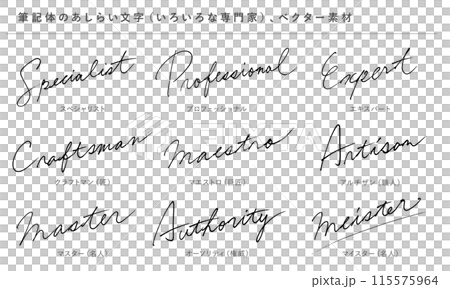 筆記体のあしらい文字(いろいろな専門家)、ベクター素材
Specialist Professional Expert
スペシャリスト プロフェッショナル エキスパート
Craftsman Maestro Artisan
クラフトマン(匠) マエストロ(巨匠) アルチザン(職人)
Master Authority Meister
マスター(名人) オーソリティ(権威) マイスター(名人)
115575964